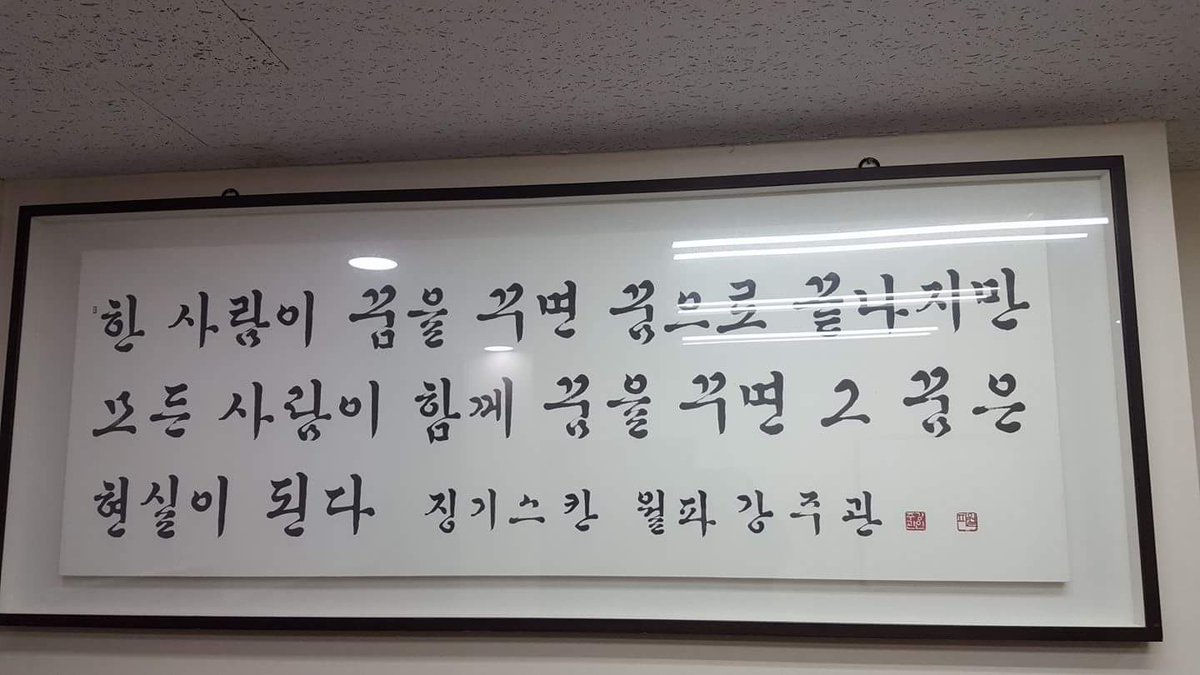 한 사람이 꿈을 꾸면 꿈으로 끝나지만
모든 사람이 함께 꿈을 꾸면 그 꿈은
현실이 된다 징기스칸 월파 강주관